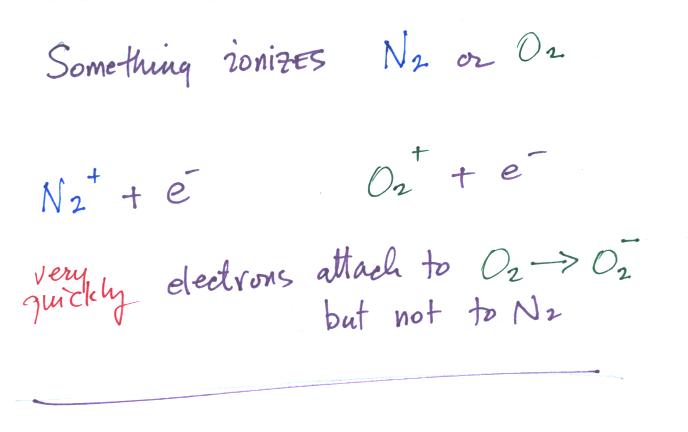 Something ionizes N₂ or O₂
N₂⁺ + e⁻ O₂⁺ + e⁻
very quickly electrons attach to O₂ → O₂⁻
but not to N₂